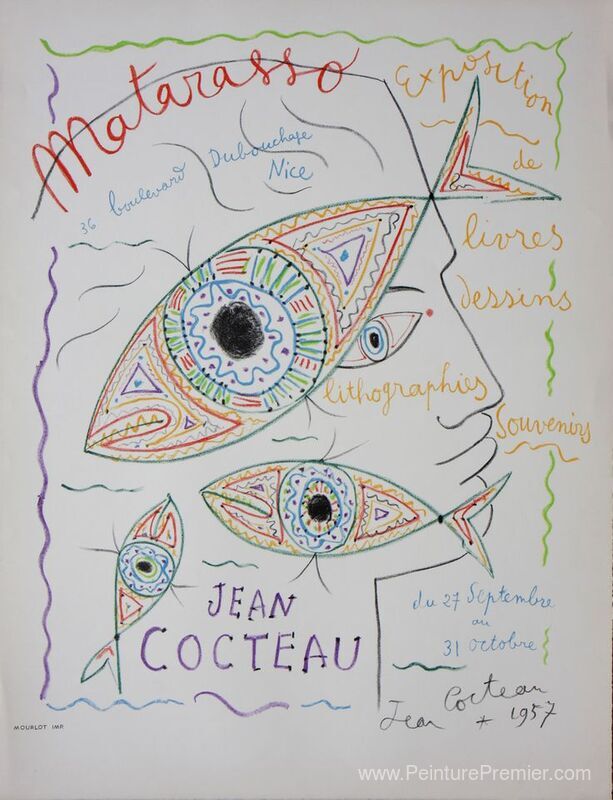 Matarasso
Exposition
36 boulevard Dubouchage
Nice
de
livres
dessins
lithographies
Souvenirs
JEAN
COCTEAU
du 27 Septembre
au
31 octobre
Jean Cocteau
1957
MOURLOT IMP.
www.PeinturePremier.com